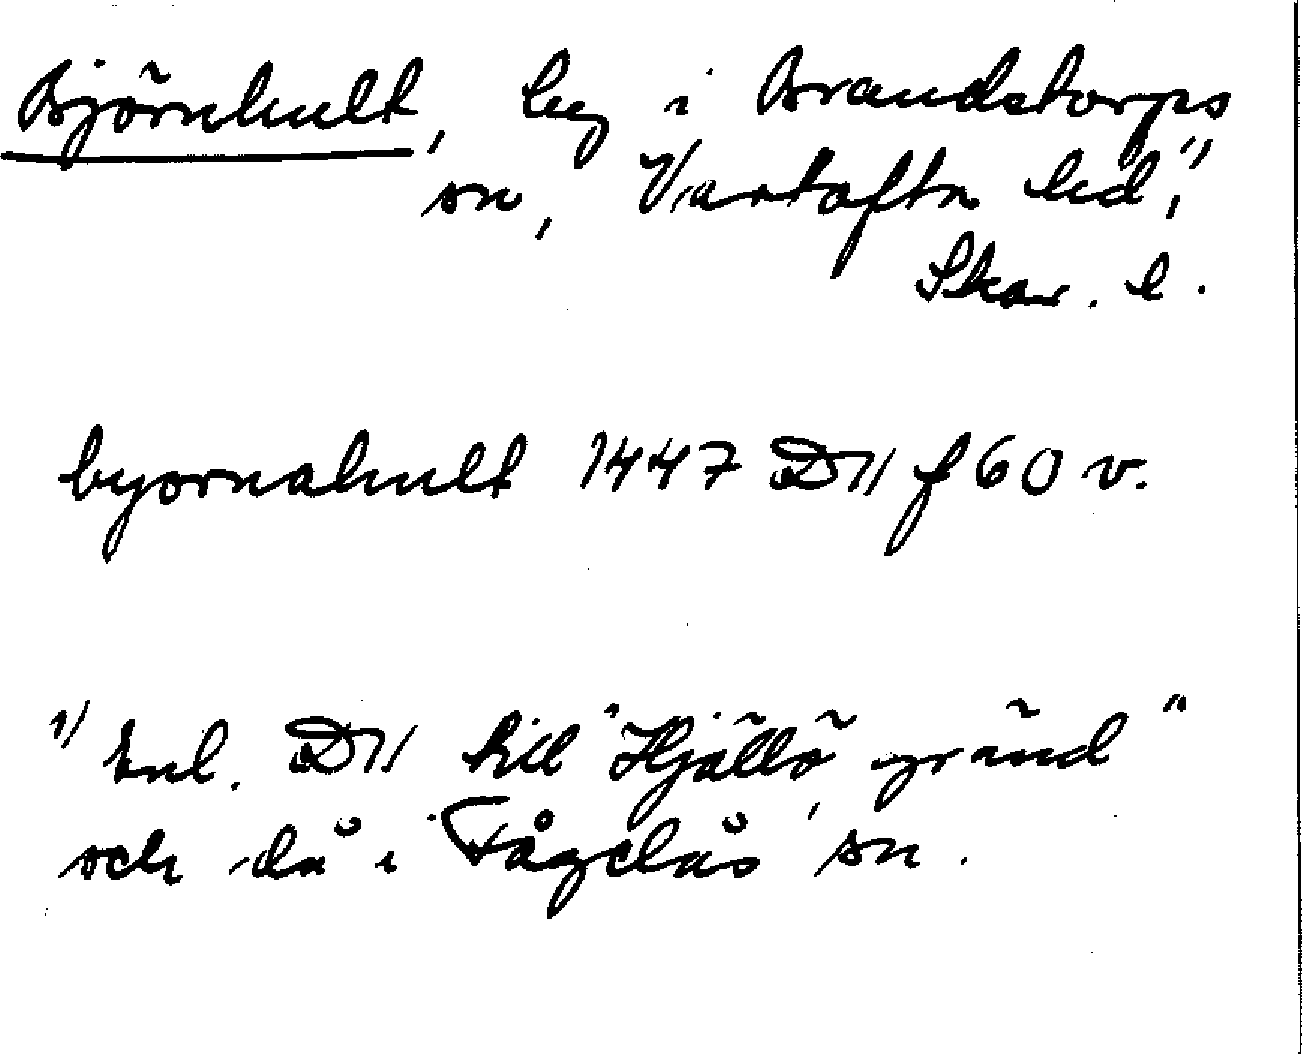 Björnhult, by i Brandstorps
sn, Vartofta hd,¹⁾
Skar. l.
byornahult 1447 D11 f 60 v.
¹⁾ Enl. D11 till "Hjällö gränd"
och då i Fågelås sn.